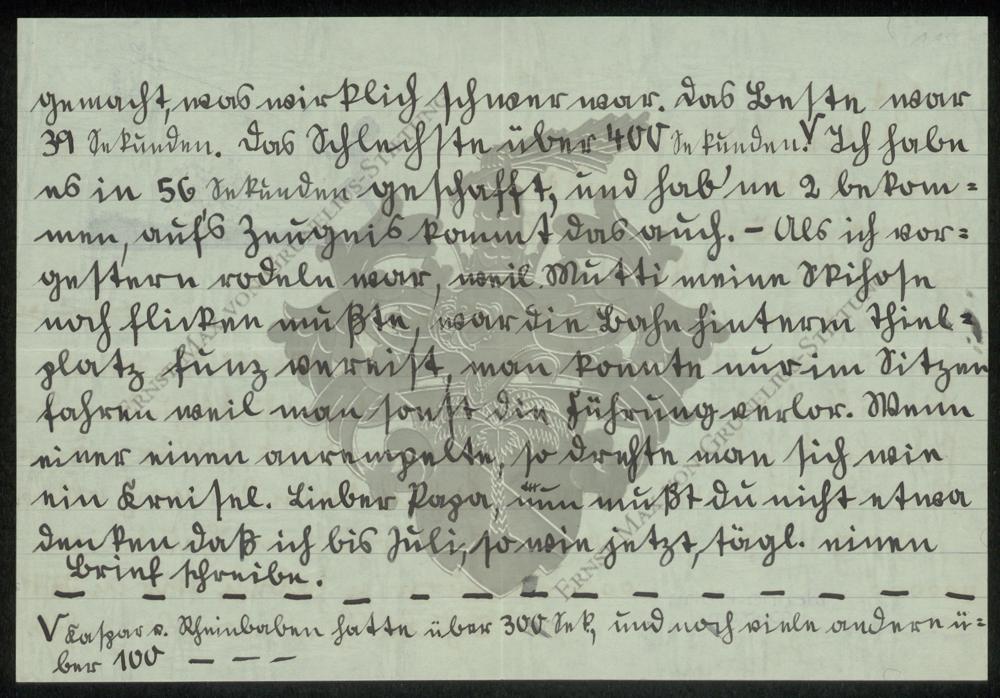 gemacht, was wirklich schwer war. Das Beste war
39 Sekunden. Das Schlechste über 400 Sekunden! V Ich habe
es in 56 Sekunden geschafft, und hab'ne 2 bekom=
men, auf's Zeugnis kommt das auch. – Als ich vor=
gestern rodeln war, weil Mutti meine Skihose
noch flicken mußte, war die Bahn hinterm Thiel=
platz funz vereist, man konnte nur im Sitzen
fahren weil man sonst die Führung verlor. Wenn
einer einen anrempelte, so drehte man sich wie
ein Kreisel. Lieber Papa, nun mußt du nicht etwa
denken daß ich bis Juli, so wie jetzt, tägl. einen
Brief schreibe.
V Caspar v. Rheinbaben hatte über 300 Sek, und noch viele andere ü=
ber 100 – – –
ERNST MAX VON GRUNELIUS-STIFTUNG
ERNST MAX VON GRUNELIUS-STIFTUNG